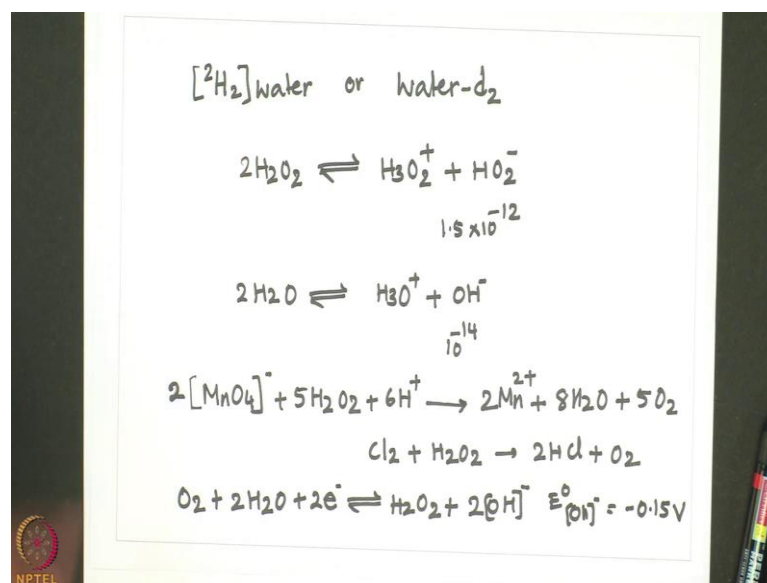 [²H₂]water or water-d₂
2H₂O₂ ⇌ H₃O₂⁺ + HO₂⁻
1.5 × 10⁻¹²
2H₂O ⇌ H₃O⁺ + OH⁻
10⁻¹⁴
2[MnO₄]⁻ + 5H₂O₂ + 6H⁺ → 2Mn²⁺ + 8H₂O + 5O₂
Cl₂ + H₂O₂ → 2HCl + O₂
O₂ + 2H₂O + 2e⁻ ⇌ H₂O₂ + 2[OH]⁻ E⁰[OH]⁻ = -0.15V
NPTEL